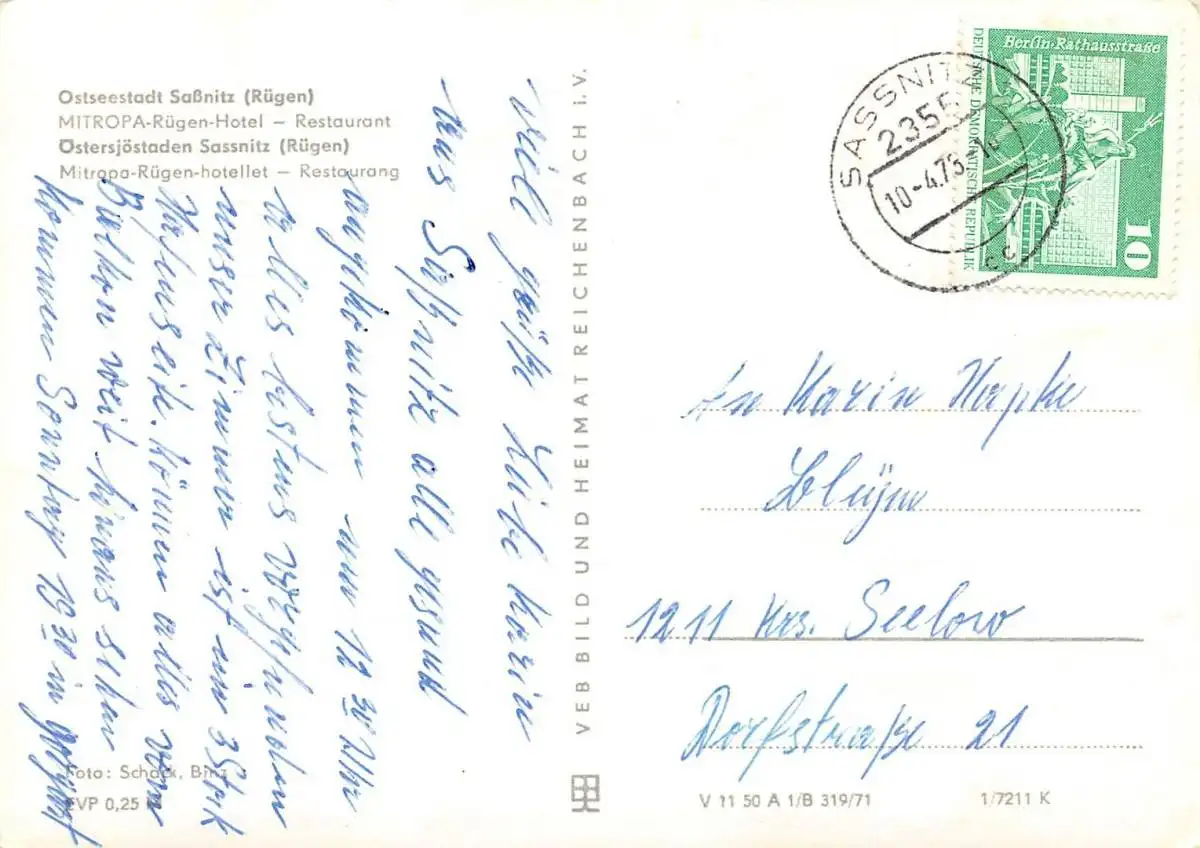 Ostseestadt Saßnitz (Rügen)
MITROPA-Rügen-Hotel – Restaurant
Östersjöstaden Sassnitz (Rügen)
Mitropa-Rügen-hotellet – Restaurang
viel grüße Liebe Karin
aus Saßnitz alle gesund
angekommen um 12 30 Uhr
alles bestens vorgefunden
unser Zimmer ist im 3 Stck
Hafenseite. können alles vom
Balkon weit hinaus sehen
kommen Sonntag 19 30 in
Foto: Schack, Binz
EVP 0,25
VEB BILD UND HEIMAT REICHENBACH i. V.
SASSNITZ
2355
10-4.73
cc
Berlin-Rathausstraße
DEUTSCHE DEMOKRATISCHE REPUBLIK
10
An Karin Hapke
1211 Krs. Seelow
Dorfstraße 21
V 11 50 A 1/B 319/71
1/7211 K